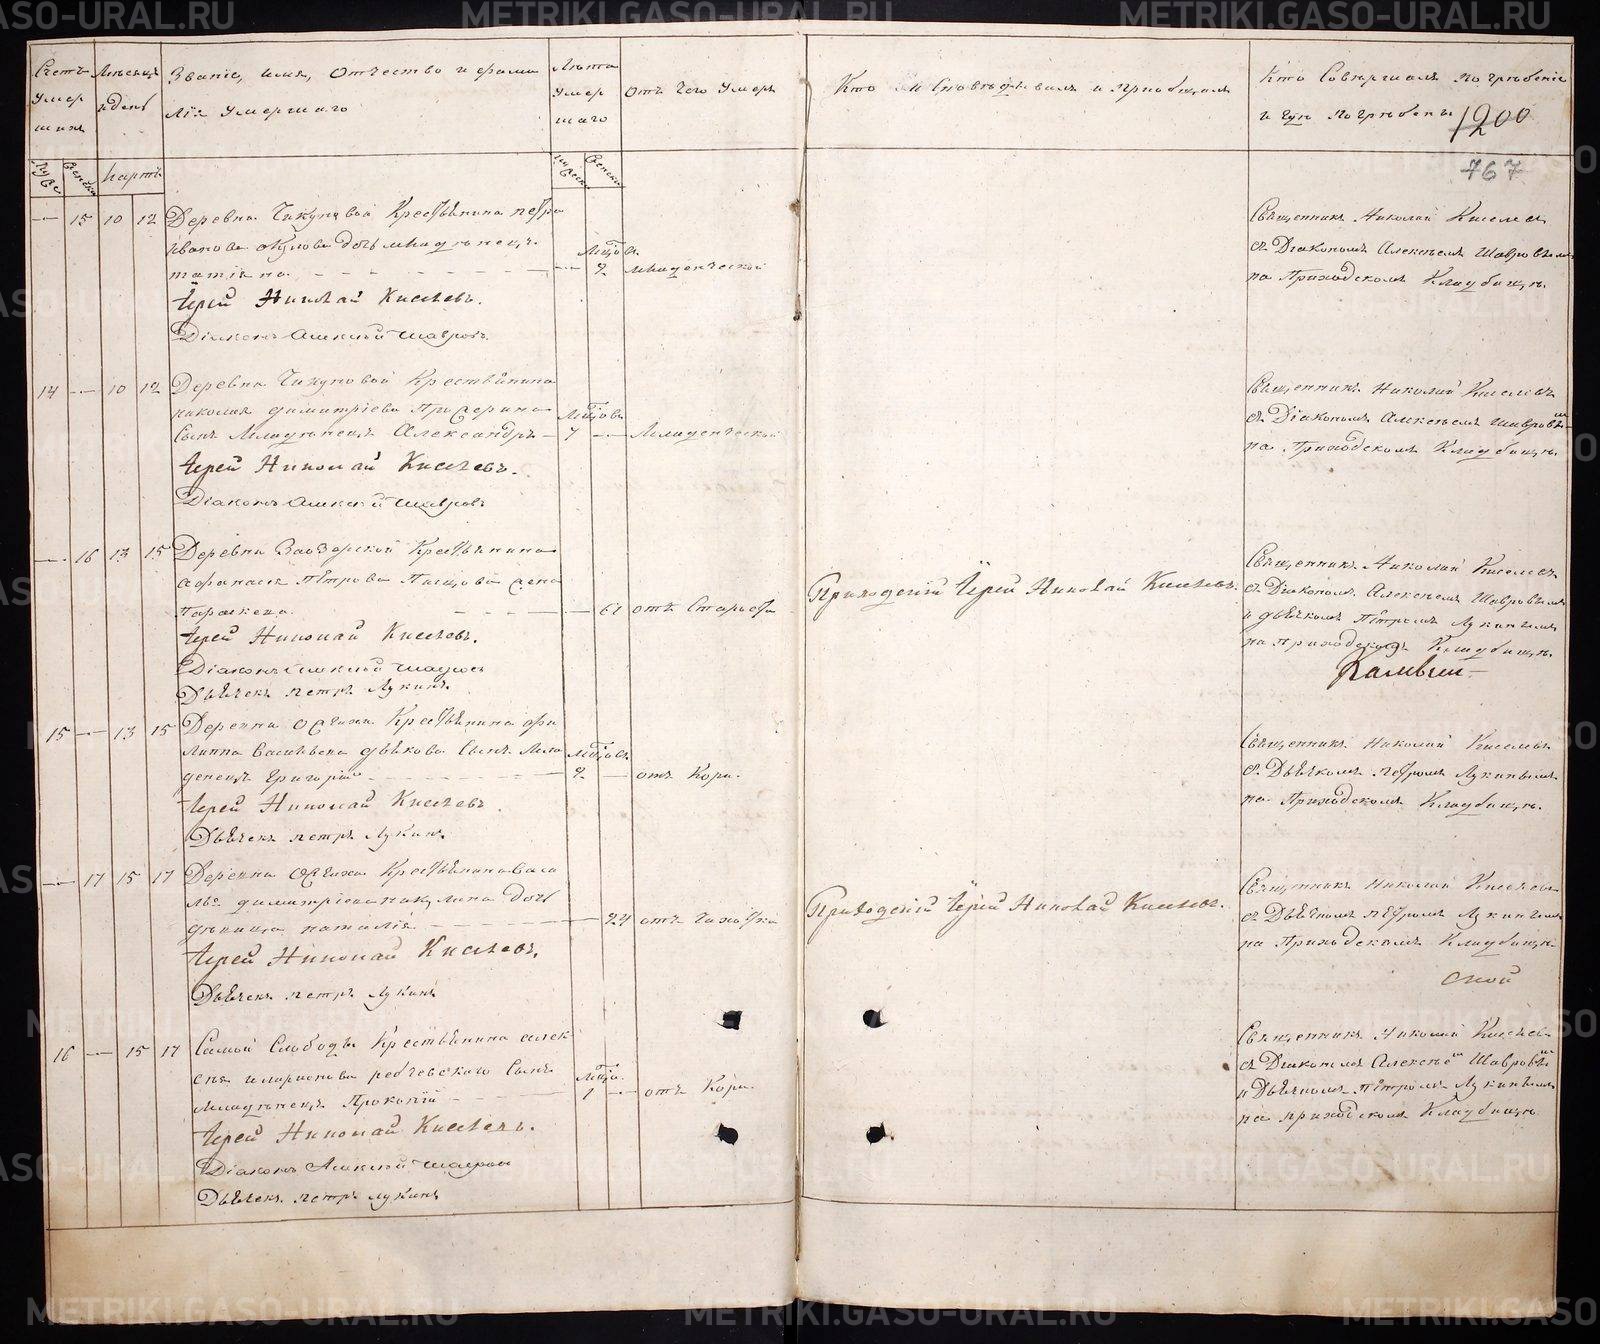 METRIKI.GASO-URAL.RU
Счетъ умершихъ
Мѣсяцъ и день
Званіе, имя, отчество и фамилія умершаго
Лѣта умершаго
Отъ чего умеръ
Кто исповѣдывалъ и пріобщалъ
Кто совершалъ погребеніе и гдѣ погребены
1200
767
Муже Женска
Марта
Мужеска Женска
— 15 10 12 Деревни Чикуновой Крестьянина Петра
Иванова Окулова дочь младѣнецъ
Татіяна — Мѣсяцовъ 2 младенческой
Іерей Николай Киселевъ.
Діаконъ Алексѣй Шавровъ.
Священникъ Николай Киселевъ
съ Діакономъ Алексѣемъ Шавровымъ
на Приходскомъ Кладбищѣ.
14 — 10 12 Деревни Чикуновой Крестьянина
Николая Димитріева
Сынъ Младѣнецъ Александръ — Мѣсяцовъ 7 — Младенческой
Іерей Николай Киселевъ.
Діаконъ Алексѣй Шавровъ
Священникъ Николай Киселевъ
съ Діакономъ Алексѣемъ Шавровымъ
на Приходскомъ Кладбищѣ.
— 16 13 15 Деревни Заозерской Крестьянина
Афанасія Петрова жена
Параскева — 61 отъ Старости
Іерей Николай Киселевъ.
Діаконъ Алексѣй Шавровъ
Дьячекъ Петръ Лукинъ.
Приходскій Іерей Николай Киселевъ.
Священникъ Николай Киселевъ
съ Діакономъ Алексѣемъ Шавровымъ
и дьячкомъ Петромъ Лукинымъ
на Приходскомъ Кладбищѣ.
15 — 13 15 Деревни Крестьянина Фи
липпа Васильева Дьякова Сынъ Мла
денецъ Григорій — Мѣсяцовъ 2 — отъ Кори.
Іерей Николай Киселевъ.
Дьячекъ Петръ Лукинъ.
Священникъ Николай Киселевъ
съ Дьячкомъ Петромъ Лукинымъ
на Приходскомъ Кладбищѣ.
— 17 15 17 Деревни Крестьянина Васи
лья Димитріева дочь
дѣвица Наталія — 24 отъ чахотки
Іерей Николай Киселевъ.
Дьячекъ Петръ Лукинъ
Приходскій Іерей Николай Киселевъ.
Священникъ Николай Киселевъ
съ Дьячкомъ Петромъ Лукинымъ
на Приходскомъ Кладбищѣ
16 — 15 17 Самой Слободы Крестьянина Алек
сѣя Иларіонова Сынъ
Младѣнецъ Прокопій — 1 — отъ Кори.
Іерей Николай Киселевъ.
Діаконъ Алексѣй Шавровъ
Дьячекъ Петръ Лукинъ
Священникъ Николай Киселевъ
съ Діакономъ Алексѣемъ Шавровымъ
и Дьячкомъ Петромъ Лукинымъ
на приходскомъ Кладбищѣ